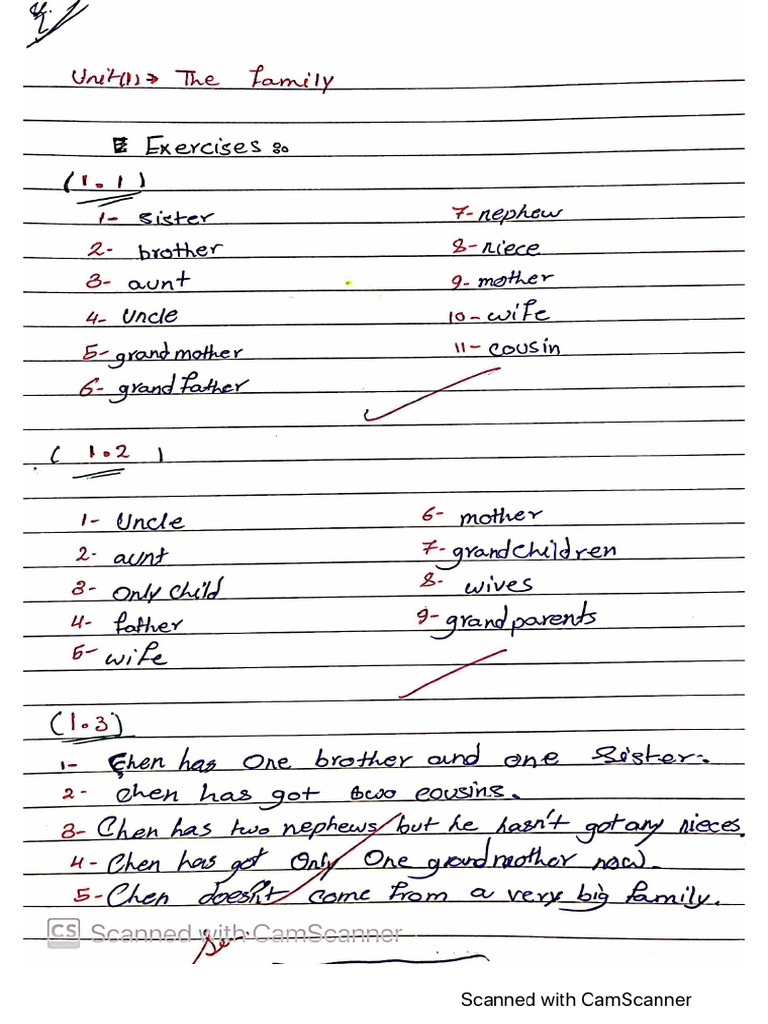 Unit(1) → The family
Exercises :
(1.1)
1- sister
2- brother
3- aunt
4- Uncle
5- grandmother
6- grandfather
7- nephew
8- niece
9- mother
10- wife
11- cousin
( 1.2 )
1- Uncle
2- aunt
3- Only child
4- father
5- wife
6- mother
7- grandchildren
8- wives
9- grandparents
(1.3)
1- Chen has One brother and one Sister.
2- Chen has got two cousins.
3- Chen has two nephews but he hasn't got any nieces.
4- Chen has got Only One grandmother now.
5- Chen doesn't come from a very big family.
CS Scanned with CamScanner
Scanned with CamScanner